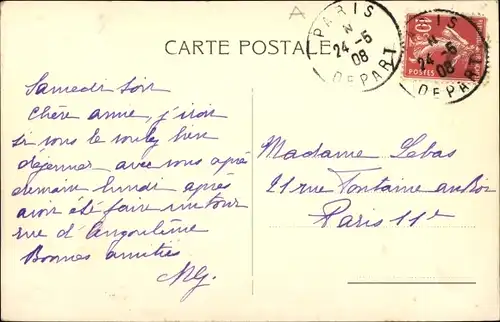 A
CARTE POSTALE
PARIS DEPART
N
24-5
08
10
POSTES
PARIS DEPART
N
24-5
08
Samedi soir
Chère anne, j'irai
si vous le voulez bien
déjeuner avec vous après
demain lundi après
avoir été faire un tour
rue d'Angoulème
Bonnes amitiés
Madame Lebas
21 rue Fontaine au Roi
Paris 11e